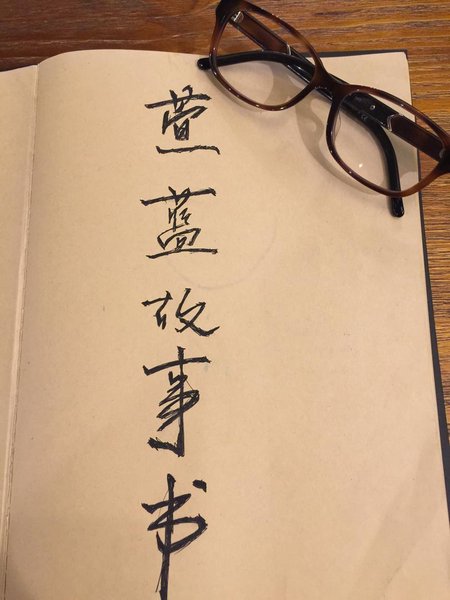 萱蓝故事书